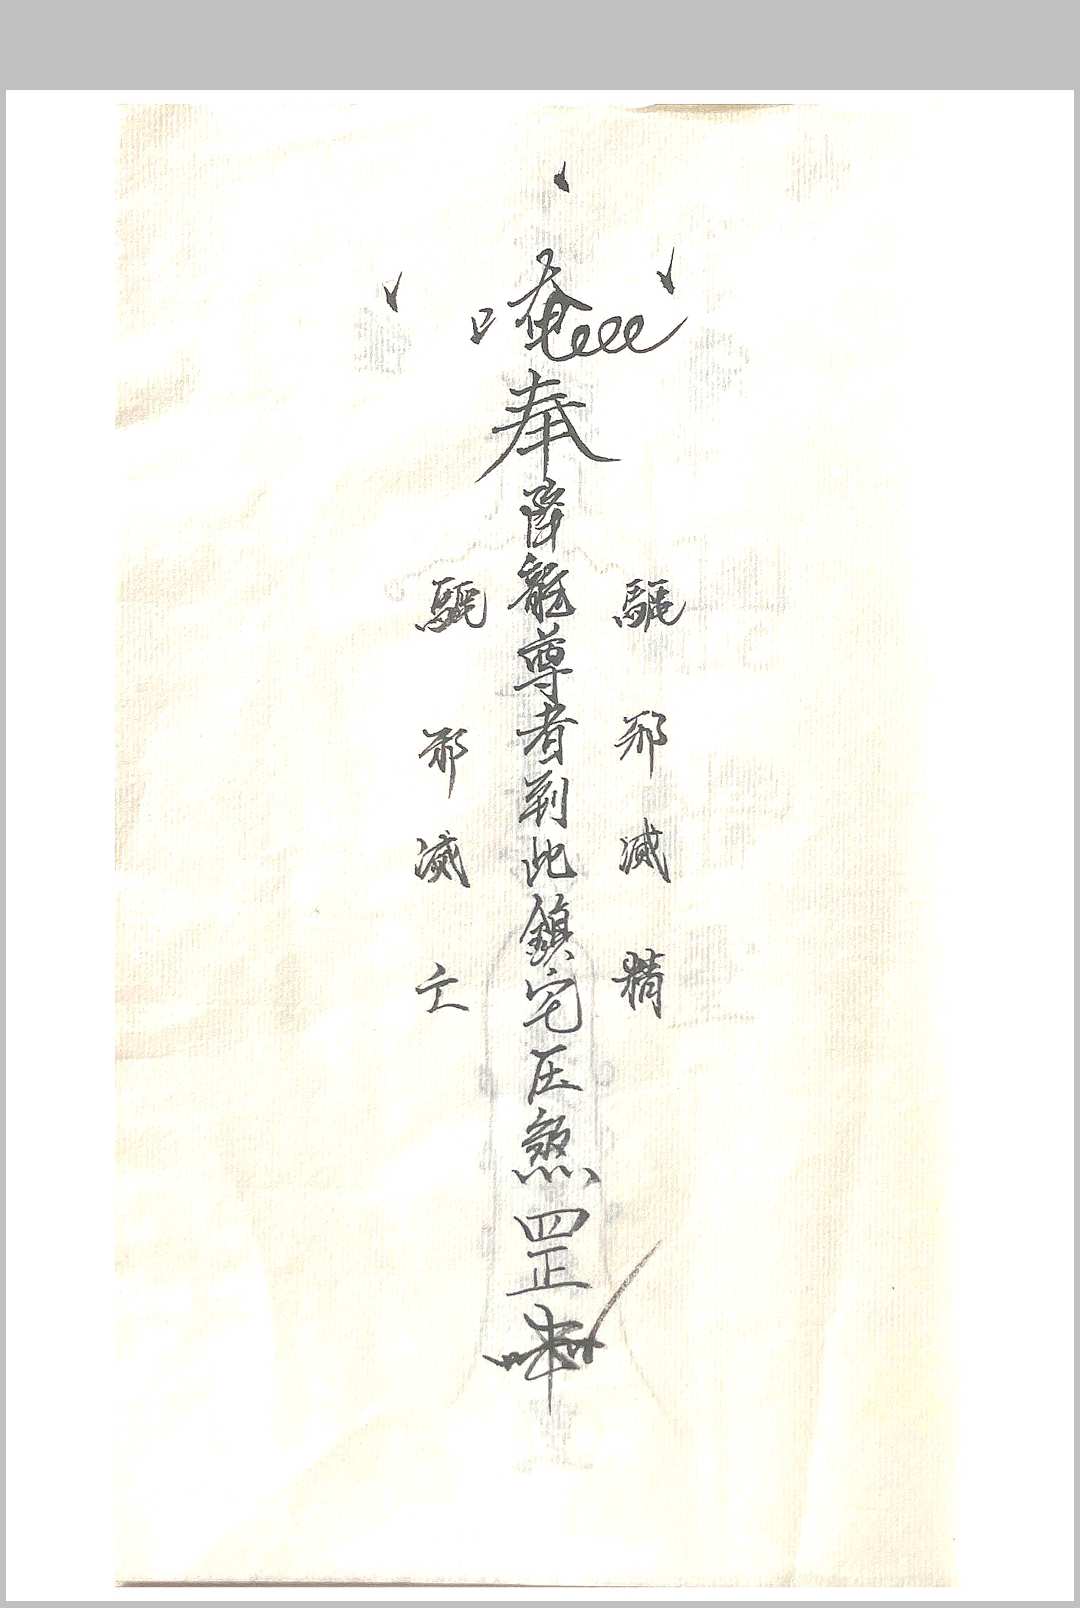 唵
奉降龍尊者到此鎮宅压煞罡
驅邪滅精
驅邪滅亡